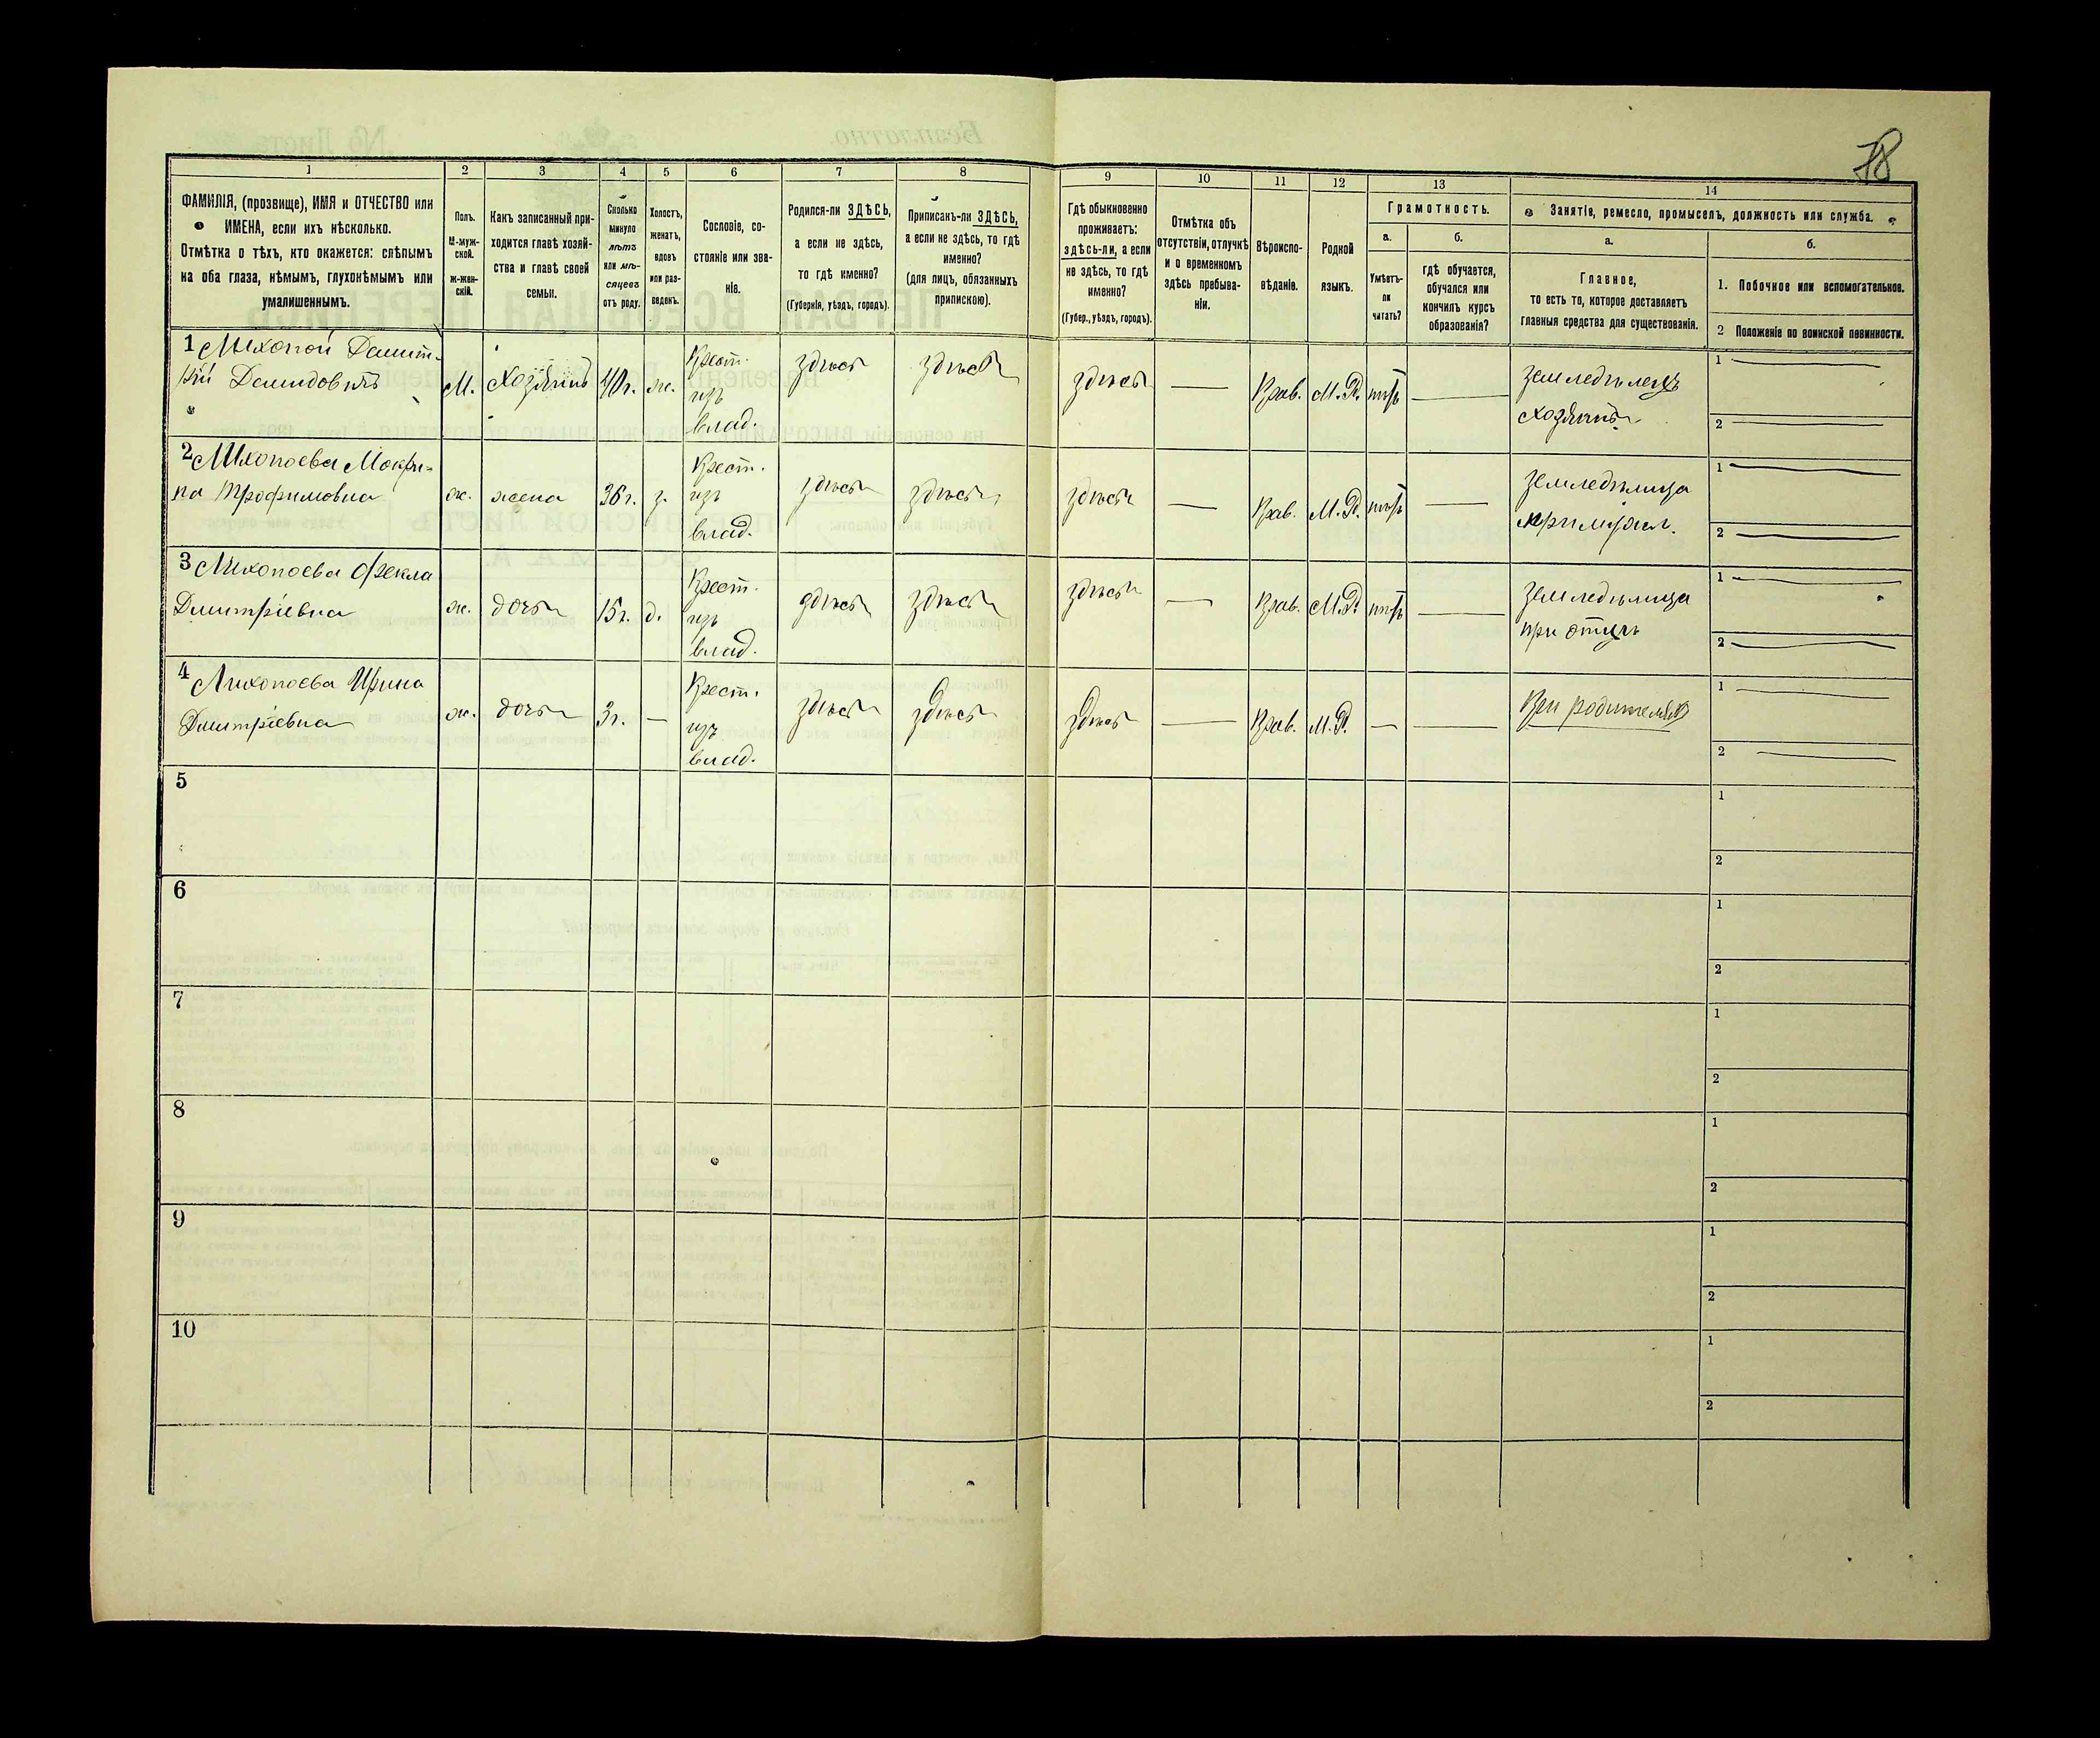 78
1 2 3 4 5 6 7 8 9 10 11 12 13 14
ФАМИЛІЯ, (прозвище), ИМЯ и ОТЧЕСТВО или
ИМЕНА, если ихъ нѣсколько.
Отмѣтка о тѣхъ, кто окажется: слѣпымъ
на оба глаза, нѣмымъ, глухонѣмымъ или
умалишеннымъ.
Полъ.
М-муж-
ской.
Ж-жен-
скій.
Какъ записанный при-
ходится главѣ хозяй-
ства и главѣ своей
семьи.
Сколько
минуло
лѣтъ
или мѣ-
сяцевъ
отъ роду.
Холостъ,
женатъ,
вдовъ
или раз-
веденъ.
Сословіе, со-
стояніе или зва-
ніе.
Родился-ли ЗДѢСЬ,
а если не здѣсь,
то гдѣ именно?
(Губернія, уѣздъ, городъ).
Приписанъ-ли ЗДѢСЬ,
а если не здѣсь, то гдѣ
именно?
(для лицъ, обязанныхъ
припискою).
Гдѣ обыкновенно
проживаетъ:
здѣсь-ли, а если
не здѣсь, то гдѣ
именно?
(Губер., уѣздъ, городъ).
Отмѣтка объ
отсутствіи, отлучкѣ
и о временномъ
здѣсь пребыва-
ніи.
Вѣроиспо-
вѣданіе.
Родной
языкъ.
Грамотность.
а.
Умѣетъ-
ли
читать?
б.
гдѣ обучается,
обучался или
кончилъ курсъ
образованія?
Занятіе, ремесло, промыселъ, должность или служба.
а.
Главное,
то есть то, которое доставляетъ
главныя средства для существованія.
б.
1. Побочное или вспомогательное.
2 Положеніе по воинской повинности.
1
рій Демидовичъ
М. Хозяинъ 40 г. ж.
Крест.
изъ
влад.
здѣсь здѣсь здѣсь — Прав. М. Р. нѣтъ —
Земледѣлецъ
хозяинъ
1 —
2 —
2
на Трофимовна
ж. жена 36 г. з.
Крест.
изъ
влад.
здѣсь здѣсь здѣсь — Прав. М. Р. нѣтъ —
Земледѣлица
1 —
2 —
3 Михопоева Фекла
Дмитріевна
ж. дочь 15 г. д.
Крест.
изъ
влад.
здѣсь здѣсь здѣсь — Прав. М. Р. нѣтъ —
Земледѣлица
при отцѣ
1 —
2 —
4 Михопоева Ирина
Дмитріевна
ж. дочь 3 г. —
Крест.
изъ
влад.
здѣсь здѣсь здѣсь — Прав. М. Р. — —
При родителяхъ
1 —
2 —
5
1
2
6
1
2
7
1
2
8
1
2
9
1
2
10
1
2